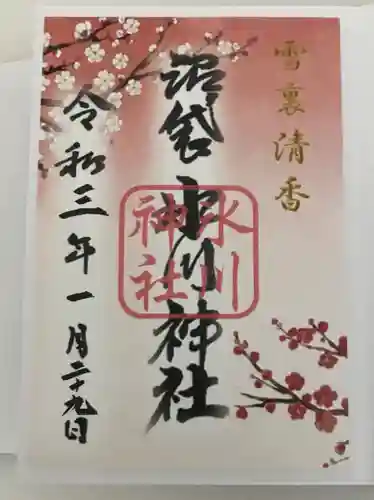 雪裏清香
沼袋氷川神社
氷川神社
令和三年一月二十九日